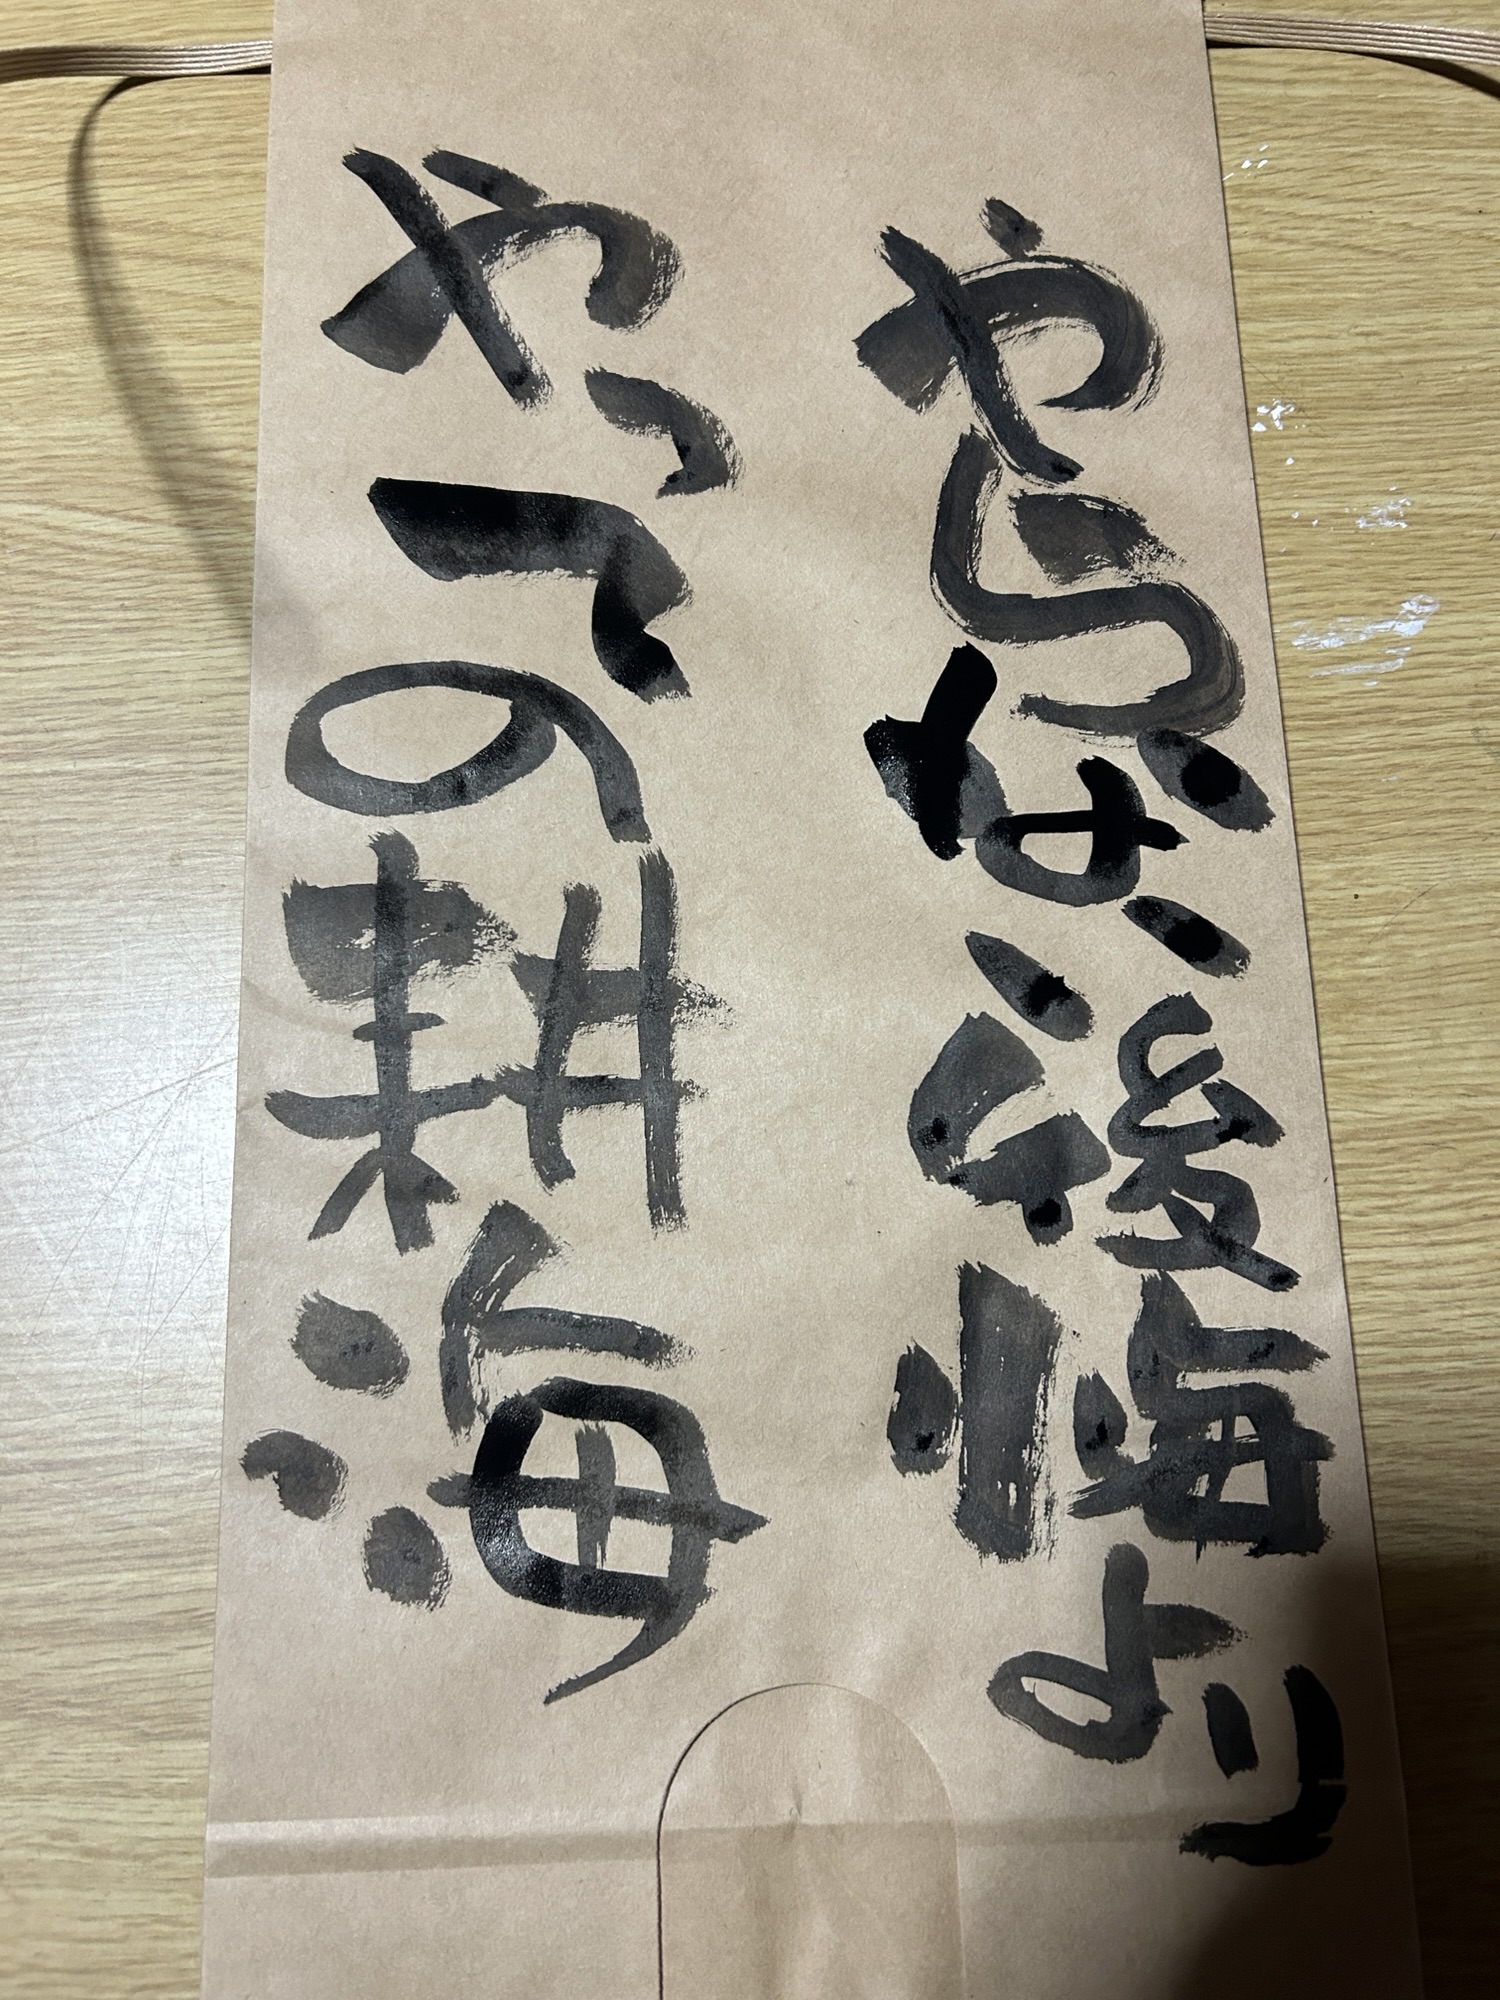 やらない後悔より
やっての耕海